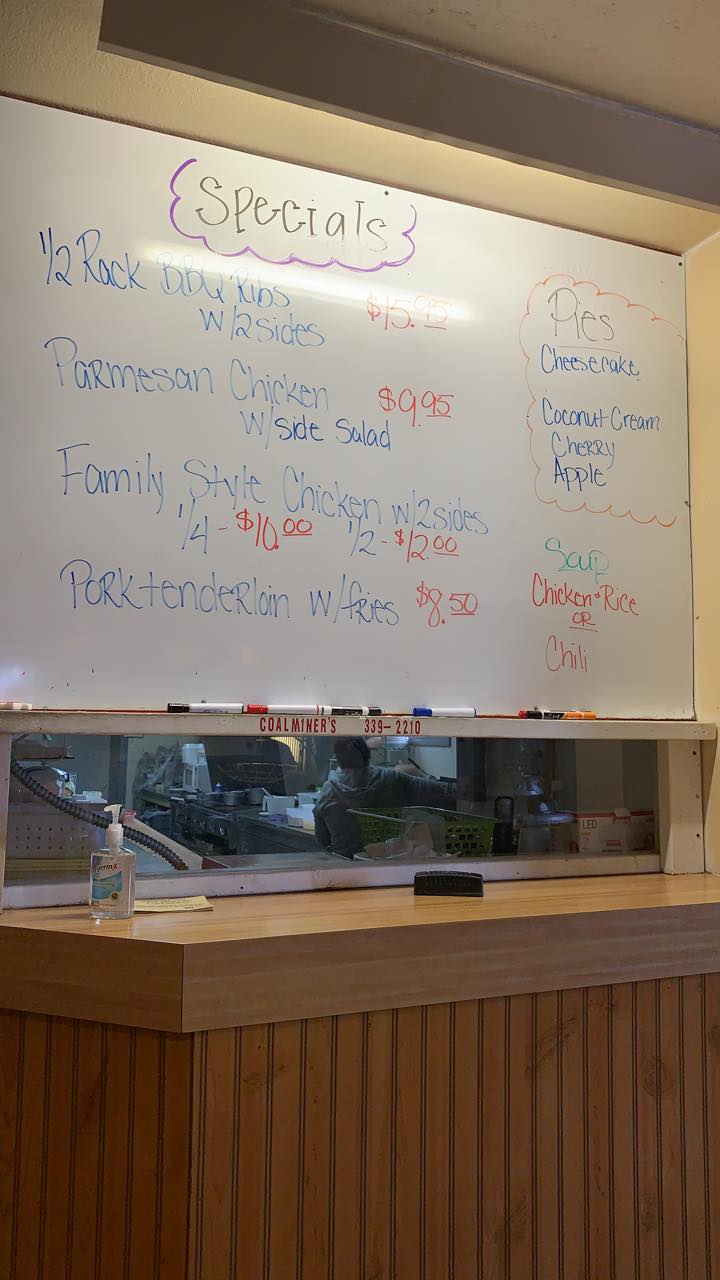 Specials
1/2 Rack BBQ Ribs $15.95
w/2 sides
Parmesan Chicken $9.95
w/side salad
Family Style Chicken w/2 sides
1/4 - $10.00 1/2 - $12.00
Pork tenderloin w/fries $8.50
Pies
Cheesecake
Coconut Cream
Cherry
Apple
Soup
Chicken & Rice
OR
Chili
COALMINER'S 339-2210
LED
germ-x